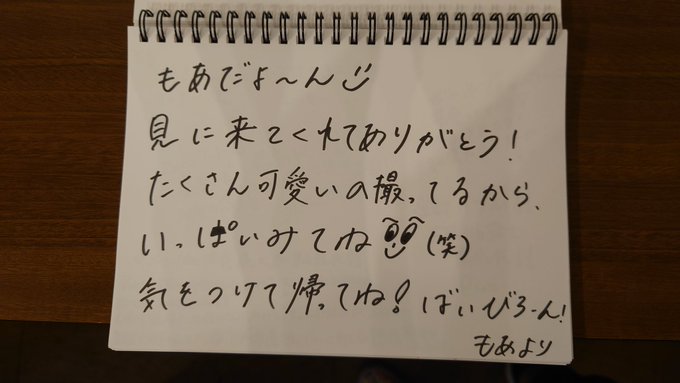 もあだよ〜ん
見に来てくれてありがとう!
たくさん可愛いの撮ってるから、
いっぱいみてね(笑)
気をつけて帰ってね!ばいびろーん!
もあより